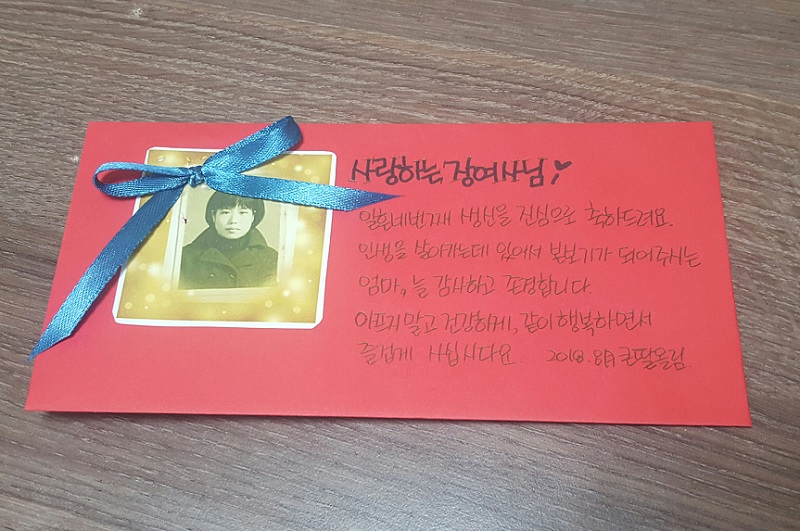 사랑하는 장여사님
일흔네번째 생신을 진심으로 축하드려요.
인생을 살아가는데 있어서 본보기가 되어주시는
엄마, 늘 감사하고 존경합니다.
아프지 말고 건강하게, 같이 행복하면서
즐겁게 사십시다요. 2018.8月 큰딸올림.